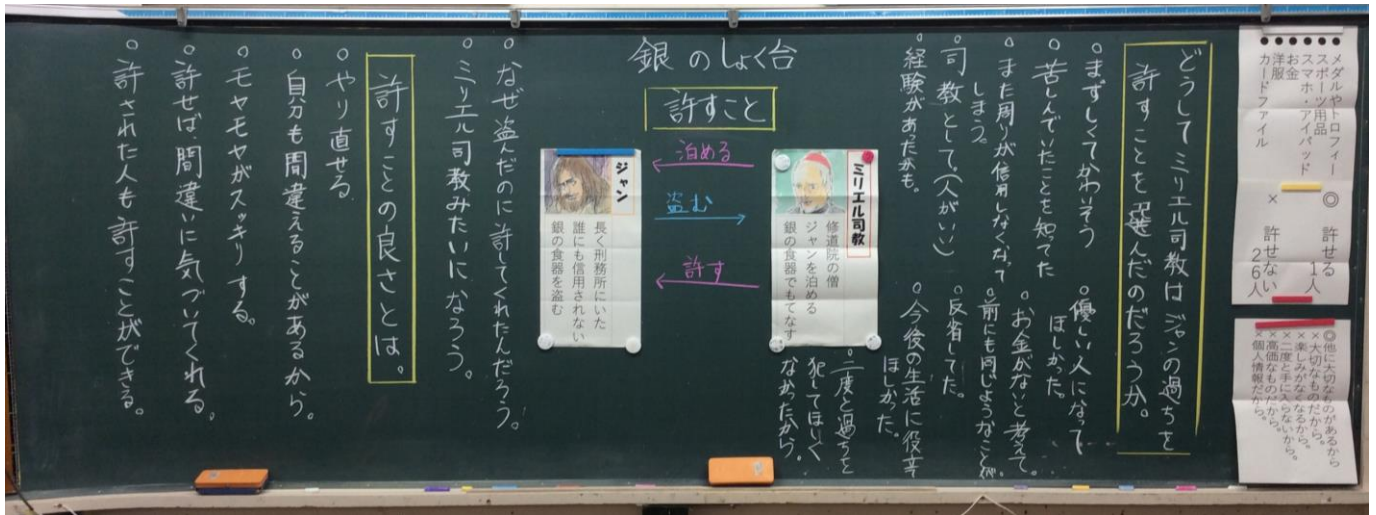 メダルやトロフィー
スポーツ用品
スマホ・アイパッド
お金
洋服
カードファイル
◎ 許せる 1人
× 許せない 26人
◎他に大切なものがあるから
×大切なものだから。
×楽しみがなくなるから。
×二度と手に入らないから。
×高価なものだから。
×個人情報だから。
どうしてミリエル司教はジャンの過ちを
許すことを選んだのだろうか。
○まずしくてかわいそう
○苦しんでいたことを知ってた
○また周りが信用しなくなって
しまう。
○司教として。(人がいい)
○経験があったかも。
○優しい人になって
ほしかった。
○お金がないと考えて。
○前にも同じようなことが
○反省してた。
○今後の生活に役立て
ほしかった。
○二度と過ちを
犯してほしく
なかったから。
銀のしょく台
許すこと
ミリエル司教
修道院の僧
ジャンを泊める
銀の食器でもてなす
泊める
盗む
許す
ジャン
長く刑務所にいた
誰にも信用されない
銀の食器を盗む
○なぜ盗んだのに許してくれたんだろう。
○ミリエル司教みたいになろう。
許すことの良さとは。
○やり直せる
○自分も間違えることがあるから。
○モヤモヤがスッキリする。
○許せば、間違いに気づいてくれる。
○許された人も許すことができる。